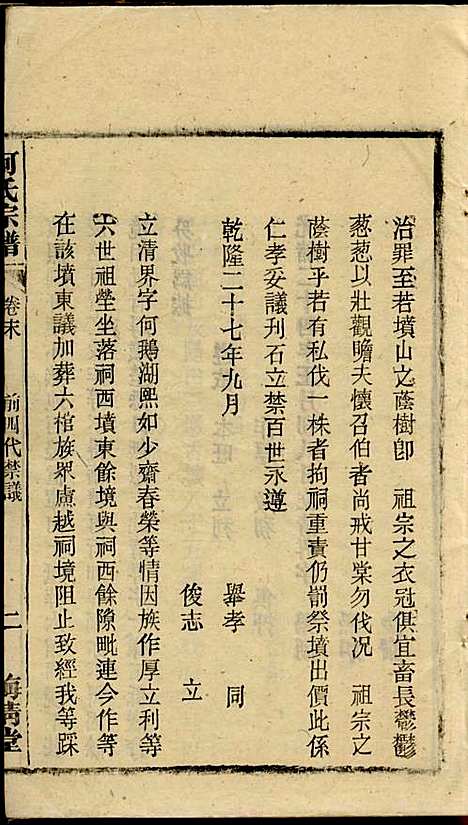 治罪至若墳山之蔭樹卽　祖宗之衣冠俱宜畜長鬱鬱
葱葱以壯觀瞻夫懷召伯者尚戒甘棠勿伐况　祖宗之
蔭樹乎若有私伐一株者拘祠重責仍罰祭墳出價此係
仁孝妥議刊石立禁百世永遵
乾隆二十七年九月　舉孝　同
俊志　立
立清界字何鵝湖熙如少齋春榮等情因族作厚立利等
六世祖塋坐落祠西墳東餘境與祠西餘隙毗連今作等
在該墳東議加葬六棺族眾慮越祠境阻止致經我等踩
何氏宗譜　卷末　前四代禁議　二